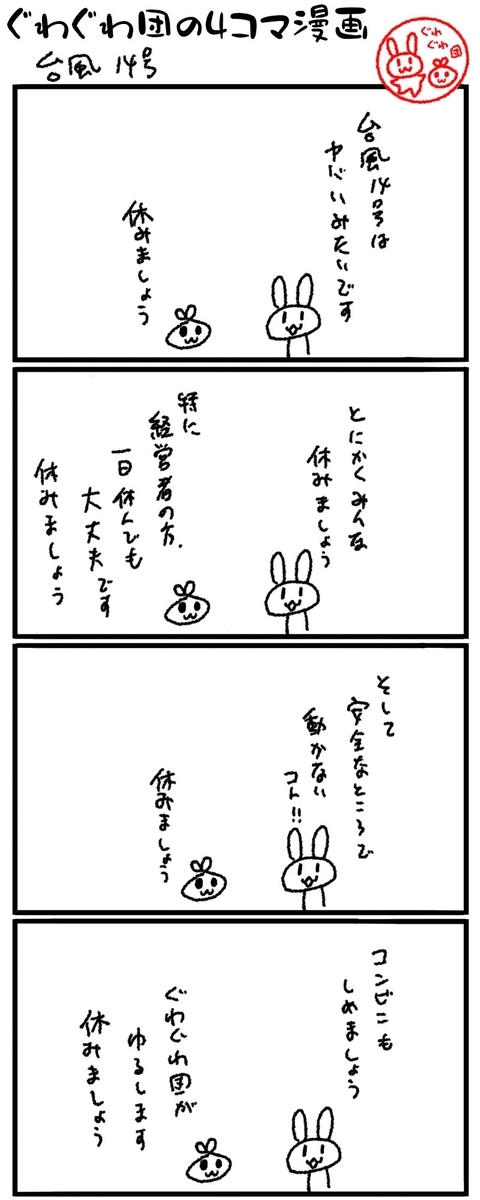 ぐわぐわ団の4コマ漫画
台風14号
ぐわ
ぐわ
団
台風14号は
ヤバいみたいです
休みましょう
とにかくみんな
休みましょう
特に
経営者の方、
一日休んでも
大丈夫です
休みましょう
そして
安全なところで
動かない
コト!!
休みましょう
コンビニも
しめましょう
ぐわぐわ団が
ゆるします
休みましょう